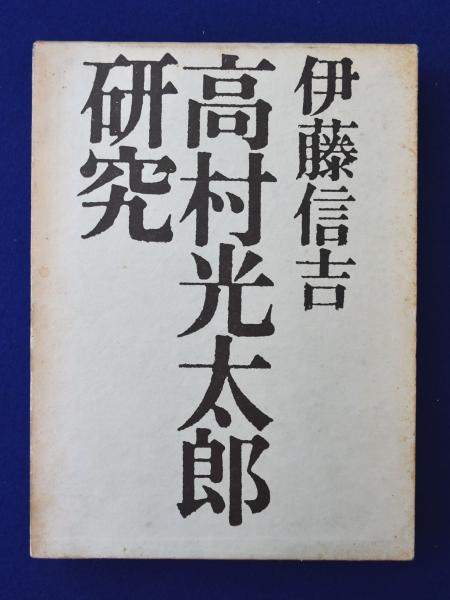 伊藤信吉
高村光太郎
研究